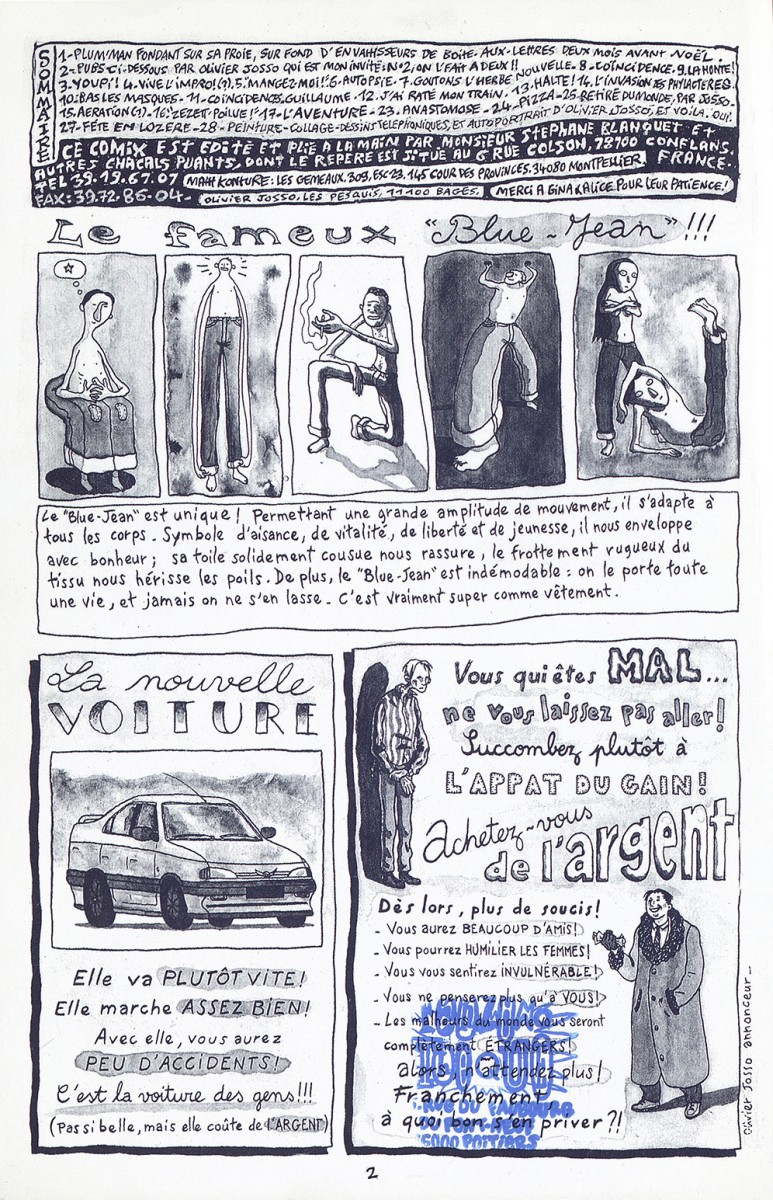 SOMMAIRE
1-PLUM'MAN FONDANT SUR SA PROIE, SUR FOND D'ENVAHISSEURS DE BOITE-AUX-LETTRES DEUX MOIS AVANT NOËL.
2-PUBS CI-DESSOUS PAR OLIVIER JOSSO QUI EST MON INVITÉ N°2, ON L'FAIT A DEUX!!
3-YOUPI! 4-VIVE L'IMPRO!(?). 5-MANGEZ-MOI! 6-AUTOPSIE. 7-GOUTONS L'HERBE NOUVELLE. 8-COÏNCIDENCE. 9-LA HONTE!
10-BAS LES MASQUES. 11-COINCIDENCES, GUILLAUME. 12-J'AI RATÉ MON TRAIN. 13-HALTE! 14-L'INVASION DES PHYLACTERES
15-AERATION(?). 16-ZEZET-POILUE! 17-L'AVENTURE. 23-ANASTOMOSE. 24-PIZZA. 25-RETIRÉ DU MONDE, PAR JOSSO.
27-FÊTE EN LOZERE. 28-PEINTURE-COLLAGE-DESSINS TELEPHONIQUES, ET AUTOPORTRAIT D'OLIVIER JOSSO, ET VOILA. OUI.
CE COMIX EST EDITÉ ET PLIÉ A LA MAIN PAR MONSIEUR STEPHANE BLANQUET ET
AUTRES CHACALS PUANTS, DONT LE REPERE EST SITUÉ AU 6 RUE COLSON, 78700 CONFLANS.
TEL 39.19.67.07 MATT KONTURE: LES GEMEAUX. 309, ESC 23. 145 COUR DES PROVINCES. 34080 MONTPELLIER. FRANCE.
FAX: 39.72-86-04- OLIVIER JOSSO, LES PESQUIS, 11100 BAGES. MERCI A GINA & ALICE POUR LEUR PATIENCE!
Le fameux "Blue-Jean"!!!
Le "Blue-Jean" est unique! Permettant une grande amplitude de mouvement, il s'adapte à
tous les corps. Symbole d'aisance, de vitalité, de liberté et de jeunesse, il nous enveloppe
avec bonheur; sa toile solidement cousue nous rassure, le frottement rugueux du
tissu nous hérisse les poils. De plus, le "Blue-Jean" est indémodable: on le porte toute
une vie, et jamais on ne s'en lasse. C'est vraiment super comme vêtement.
La nouvelle
VOITURE
Elle va PLUTÔT VITE!
Elle marche ASSEZ BIEN!
Avec elle, vous aurez
PEU D'ACCIDENTS!
C'est la voiture des gens!!!
(Pas si belle, mais elle coûte de l'ARGENT)
Vous qui êtes MAL...
ne vous laissez pas aller!
Succombez plutôt à
L'APPAT DU GAIN!
achetez-vous
de l'argent
Dès lors, plus de soucis!
- Vous aurez BEAUCOUP D'AMIS!
- Vous pourrez HUMILIER LES FEMMES!
- Vous vous sentirez INVULNÉRABLE!
- Vous ne penserez plus qu'à VOUS!
- Les malheurs du monde vous seront
complètement ÉTRANGERS!
alors, n'attendez plus!
Franchement
à quoi bon s'en priver?!
RUE DU FAUBOURG
DU PONT-NEUF
86000 POITIERS
Olivier Josso annonceur-
2